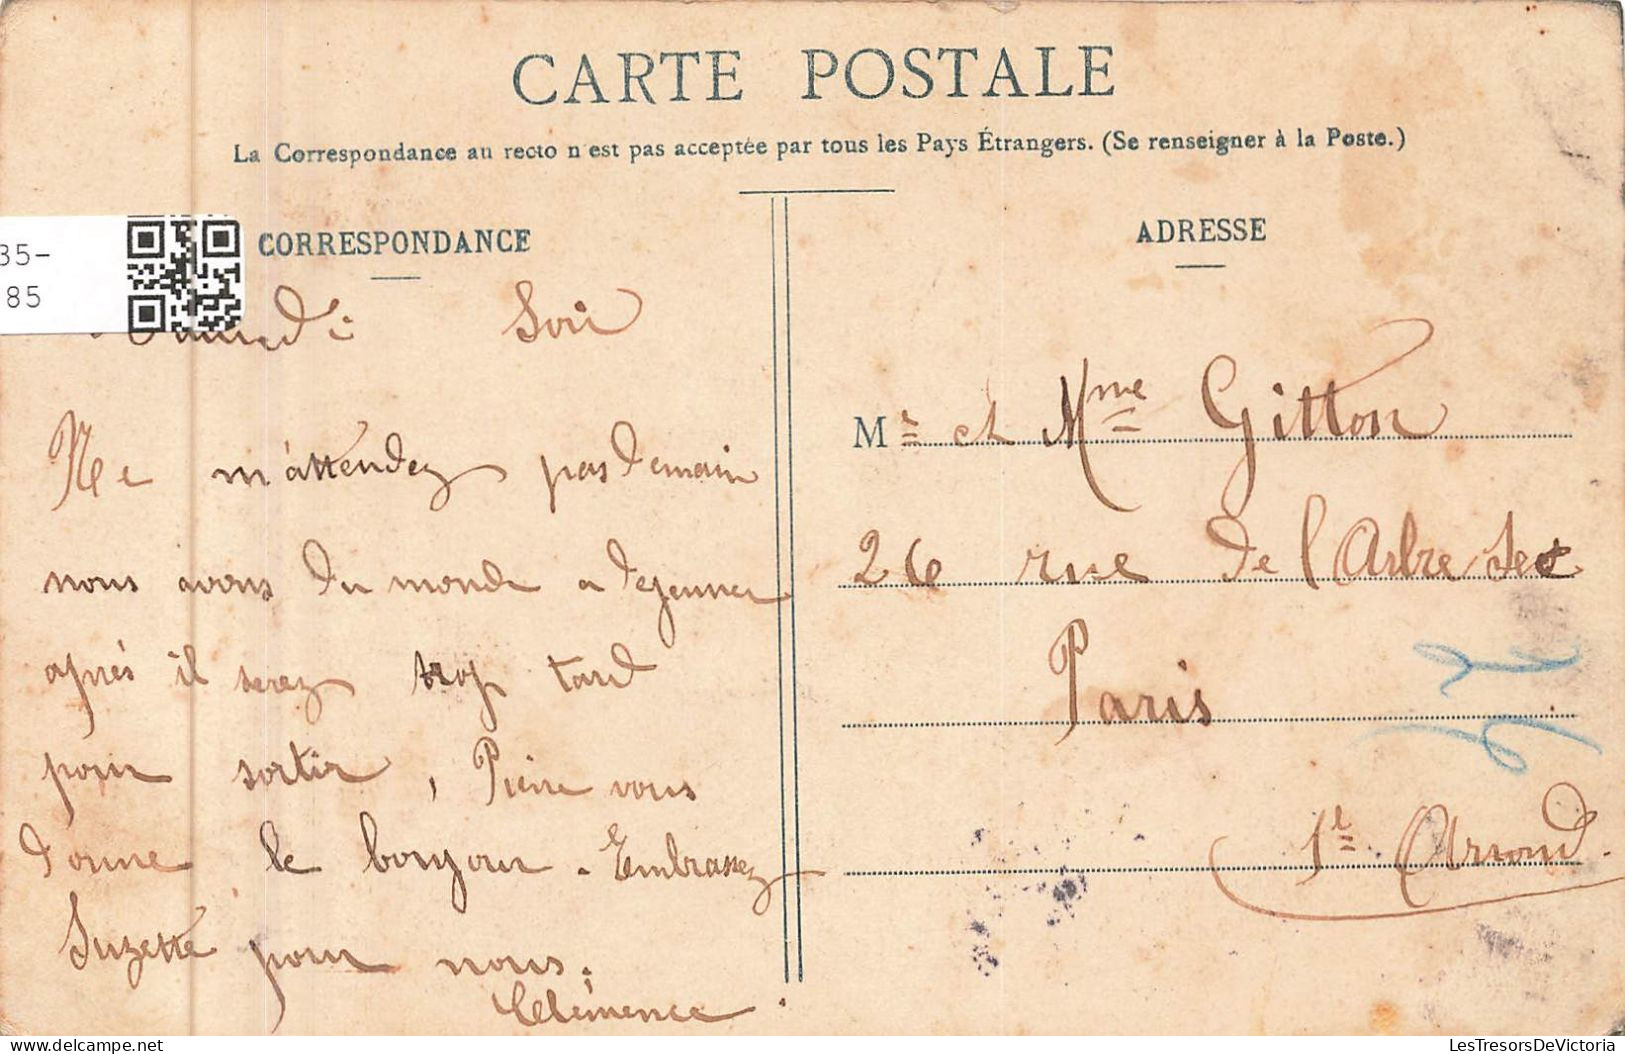 CARTE POSTALE
La Correspondance au recto n'est pas acceptée par tous les Pays Étrangers. (Se renseigner à la Poste.)
35-
85
CORRESPONDANCE
ADRESSE
Soir
Ne m'attendez pas demain
nous avons du monde a dejeuner
après il serez trop tard
pour sortir, Pierre vous
donne le bonjour. Embrassez
Suzette pour nous.
Clémence
Mr et Mme Gitton
26 rue de l'Arbre Sec
Paris
1e Arrond.
LesTresorsDeVictoria
delcampe.net